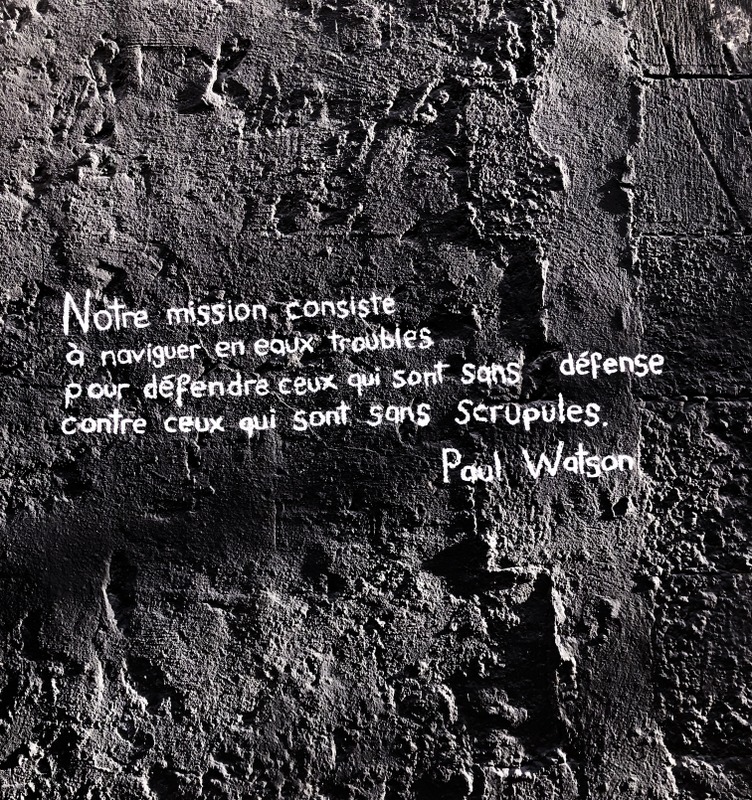 Notre mission consiste
à naviguer en eaux troubles
pour défendre ceux qui sont sans défense
contre ceux qui sont sans scrupules.
Paul Watson